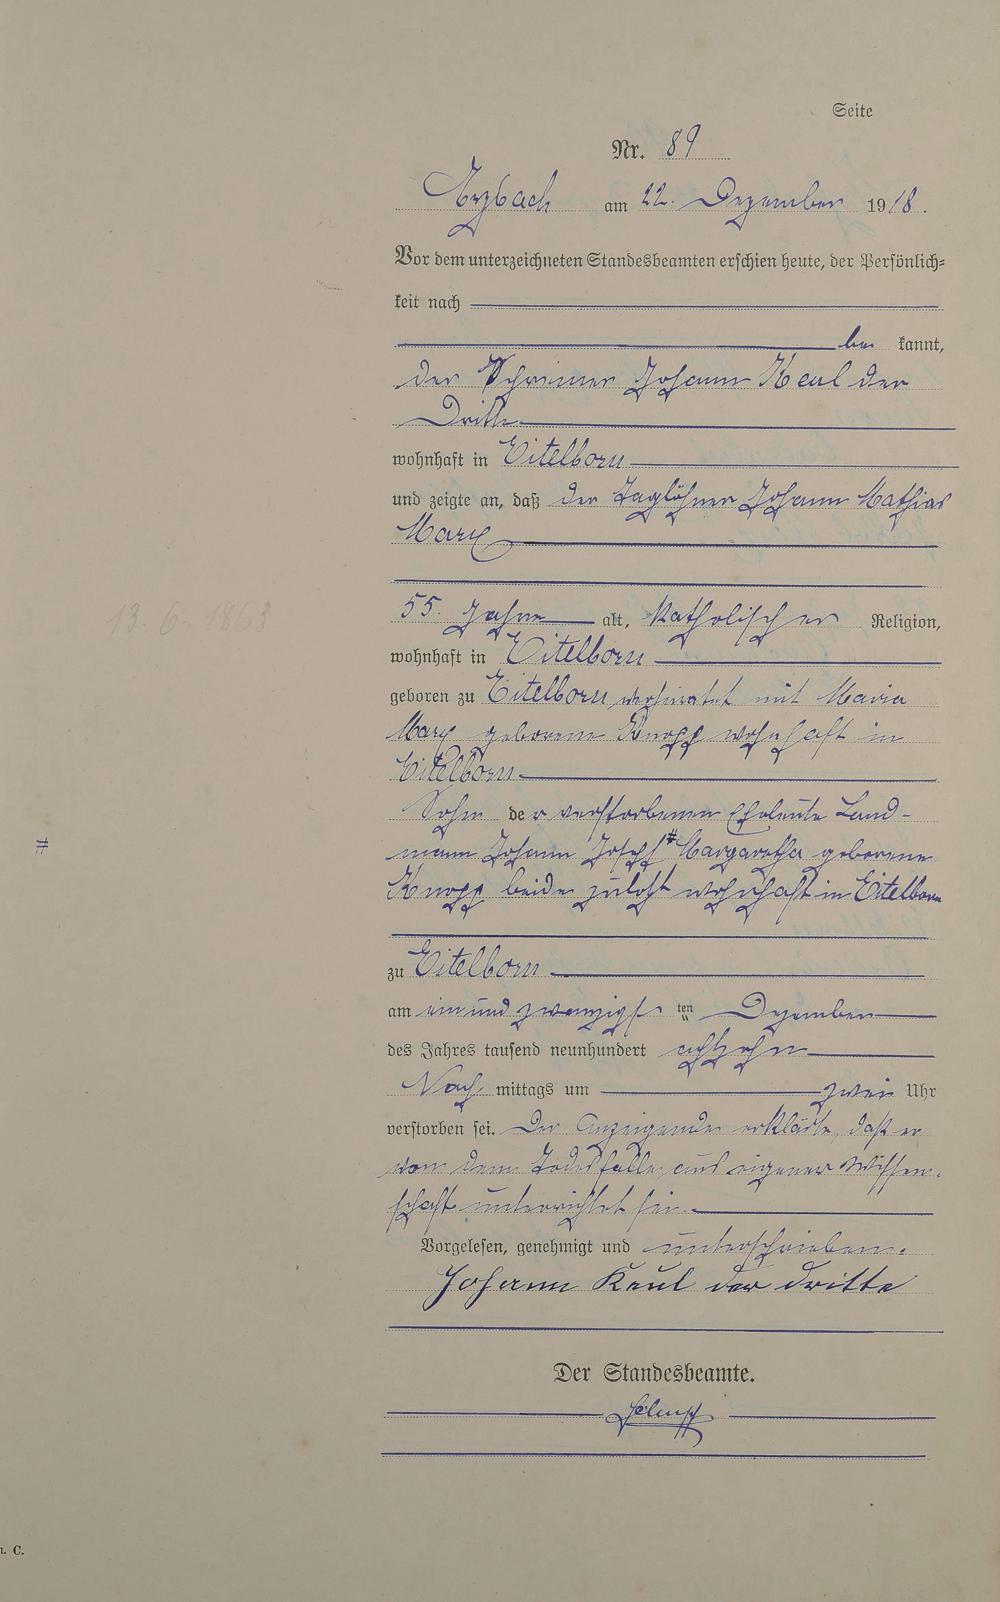 Seite
Nr. 89
Arzbach am 22. Dezember 1918.
Vor dem unterzeichneten Standesbeamten erschien heute, der Persönlich-
keit nach
be kannt,
der Schreiner Johann Keul der
Dritte
wohnhaft in Eitelborn
und zeigte an, daß der Taglöhner Johann Mathias
Marx
55 Jahre alt, katholischer Religion,
13. 6. 1863
wohnhaft in Eitelborn
geboren zu Eitelborn verheiratet mit Maria
Marx geborene Knopp wohnhaft in
Eitelborn
Sohn der verstorbenen Eheleute Land-
mann Johann Joseph # Margaretha geborene
#
Knopp beide zuletzt wohnhaft in Eitelborn
zu Eitelborn
am ein und zwanzigsten Dezember
des Jahres tausend neunhundert achtzehn
Nach mittags um zwei Uhr
verstorben sei. Der Anzeigende erklärte, daß er
von dem Todesfalle aus eigener Wissen-
schaft unterrichtet sei.
Vorgelesen, genehmigt und unterschrieben.
Johann Keul der dritte
Der Standesbeamte.
. C.